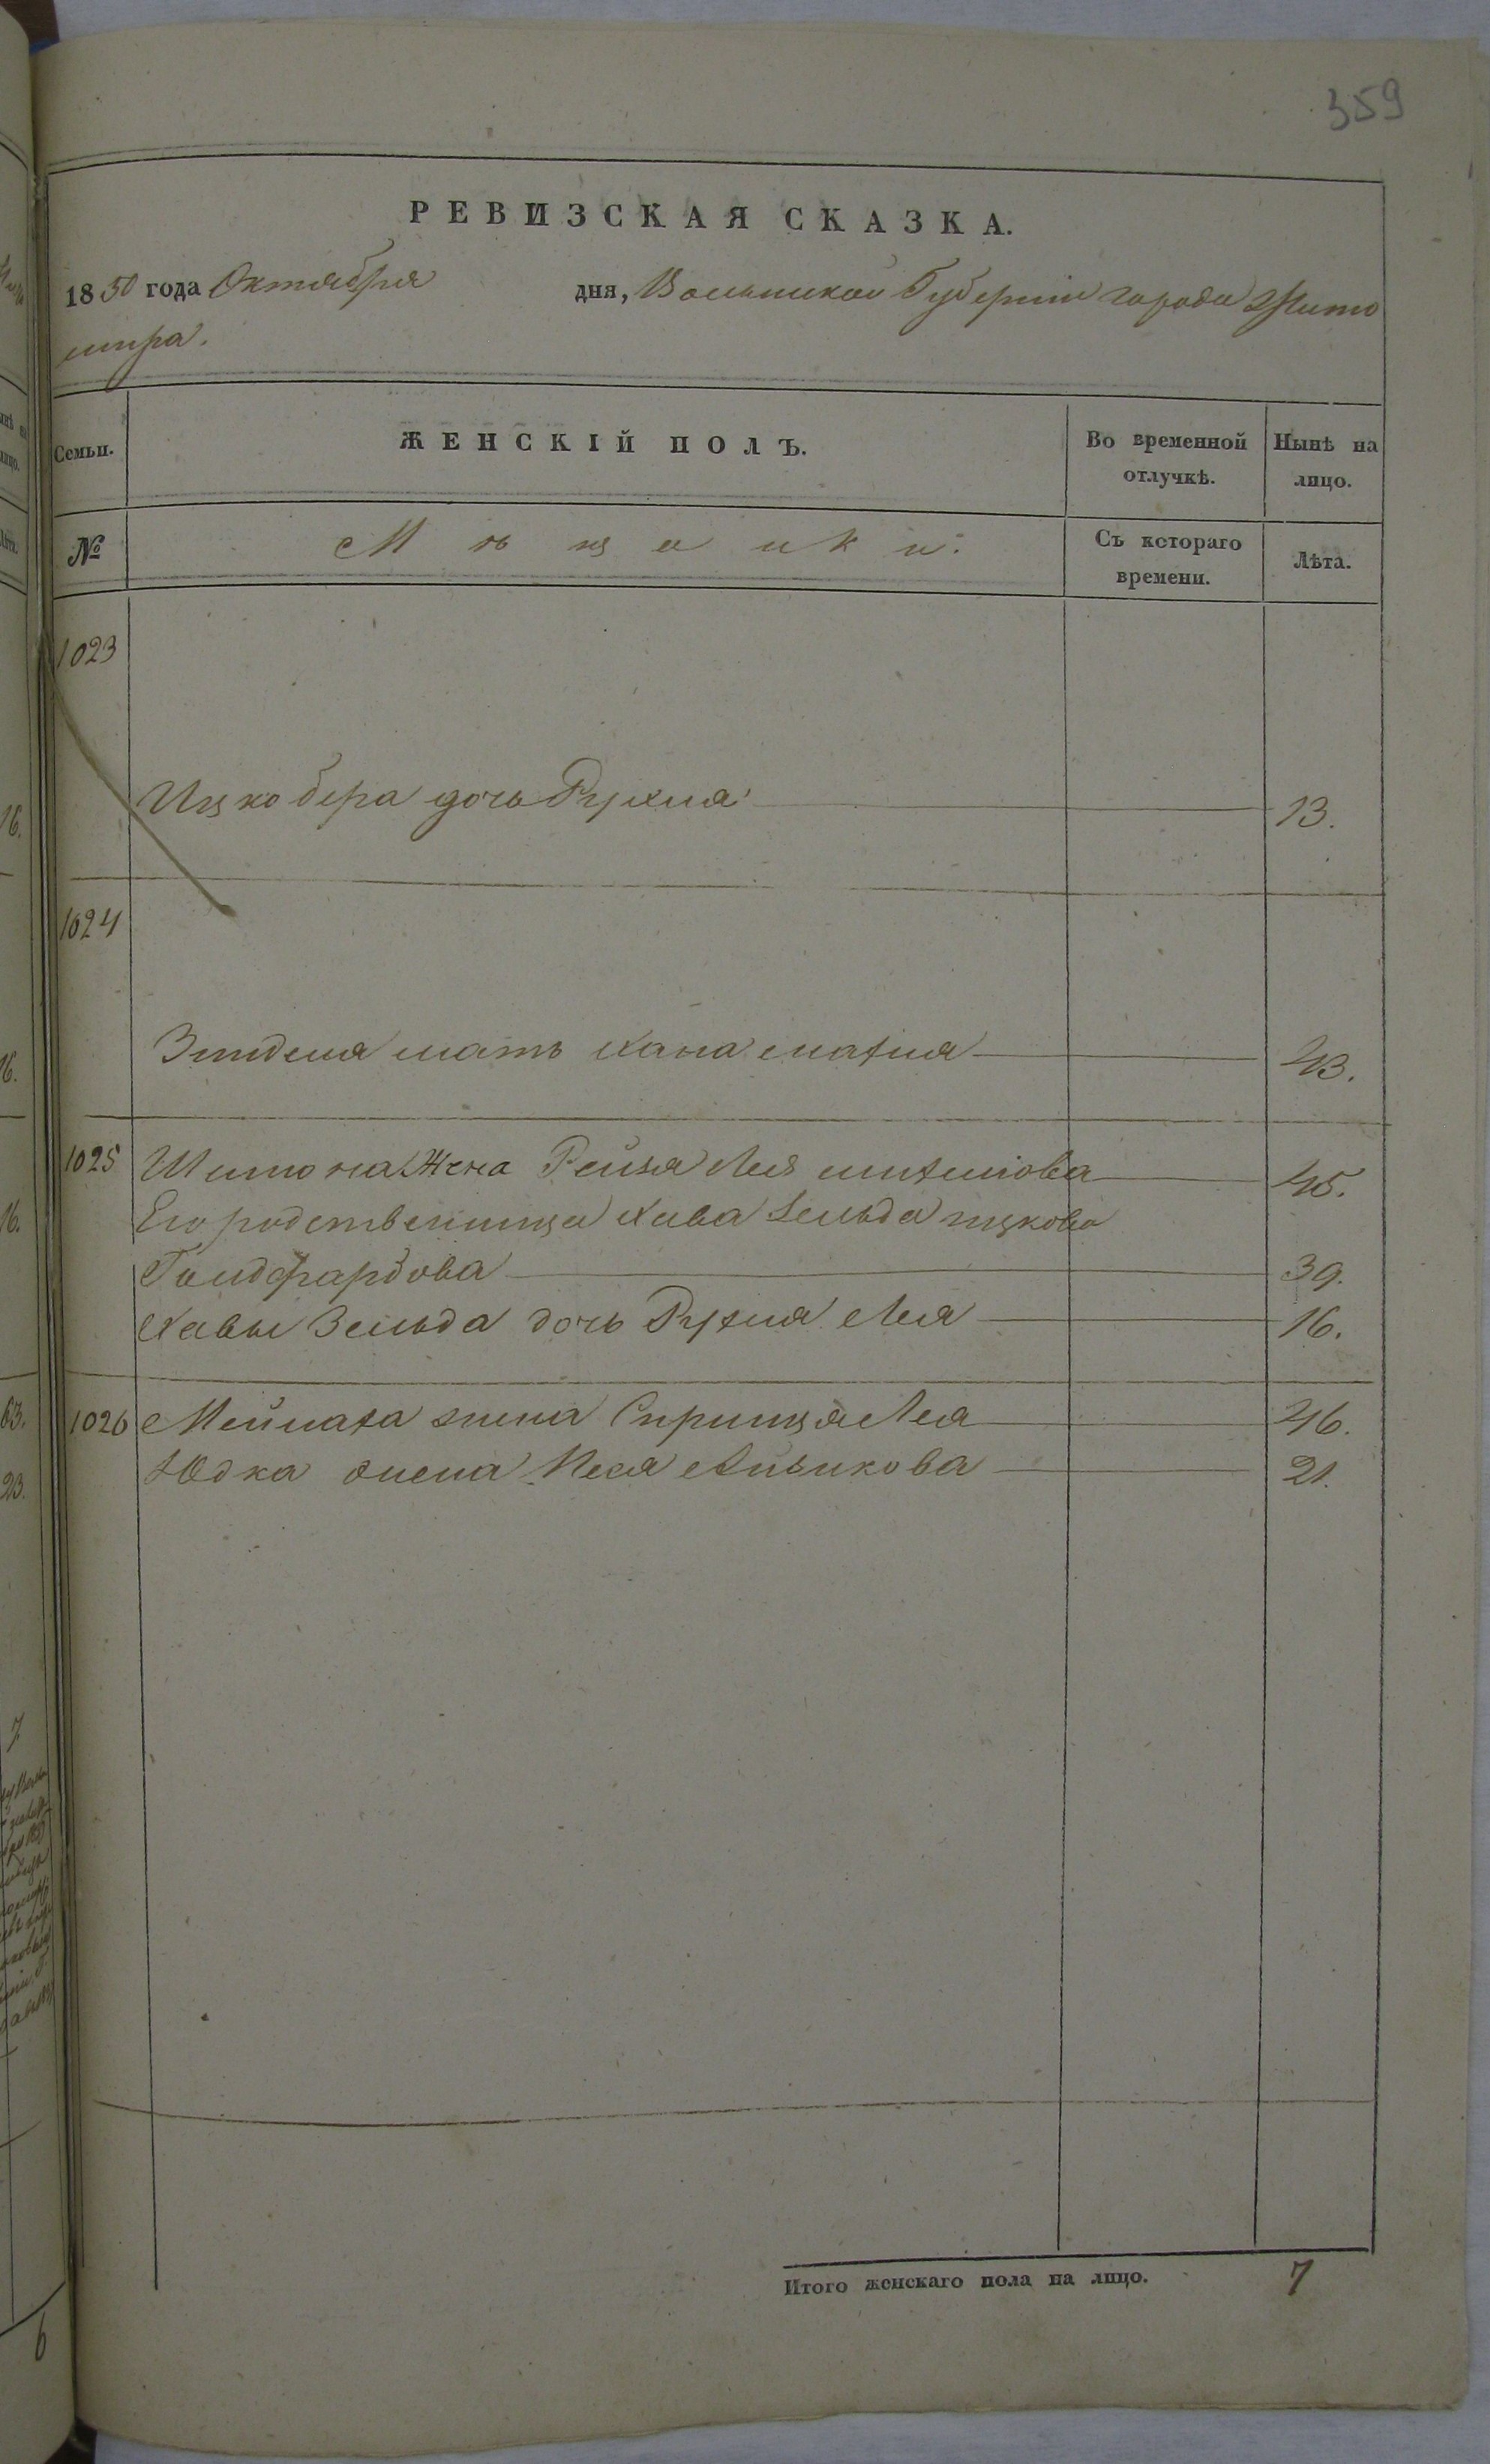 359
РЕВИЗСКАЯ СКАЗКА.
1850 года Октября дня, Волынской Губернии города Жито
мира.
Семьи. ЖЕНСКІЙ ПОЛЪ. Во временной отлучкѣ. Нынѣ на лицо.
№ Мѣщанки. Съ котораго времени. Лѣта.
1023
Ицко бера дочь Рухля 13.
1024
мать Хана 43.
1025 Шимона Жена Рейзя Лея 45.
Его родственница Хава Зельда ицкова
39.
Хавы Зельда дочь Рухля Лея 16.
1026 жена Сприндзя Лея 46.
Юдка жена Песя 21.
Итого женскаго пола на лицо. 7
16.
16.
16.
63.
23.
7
6